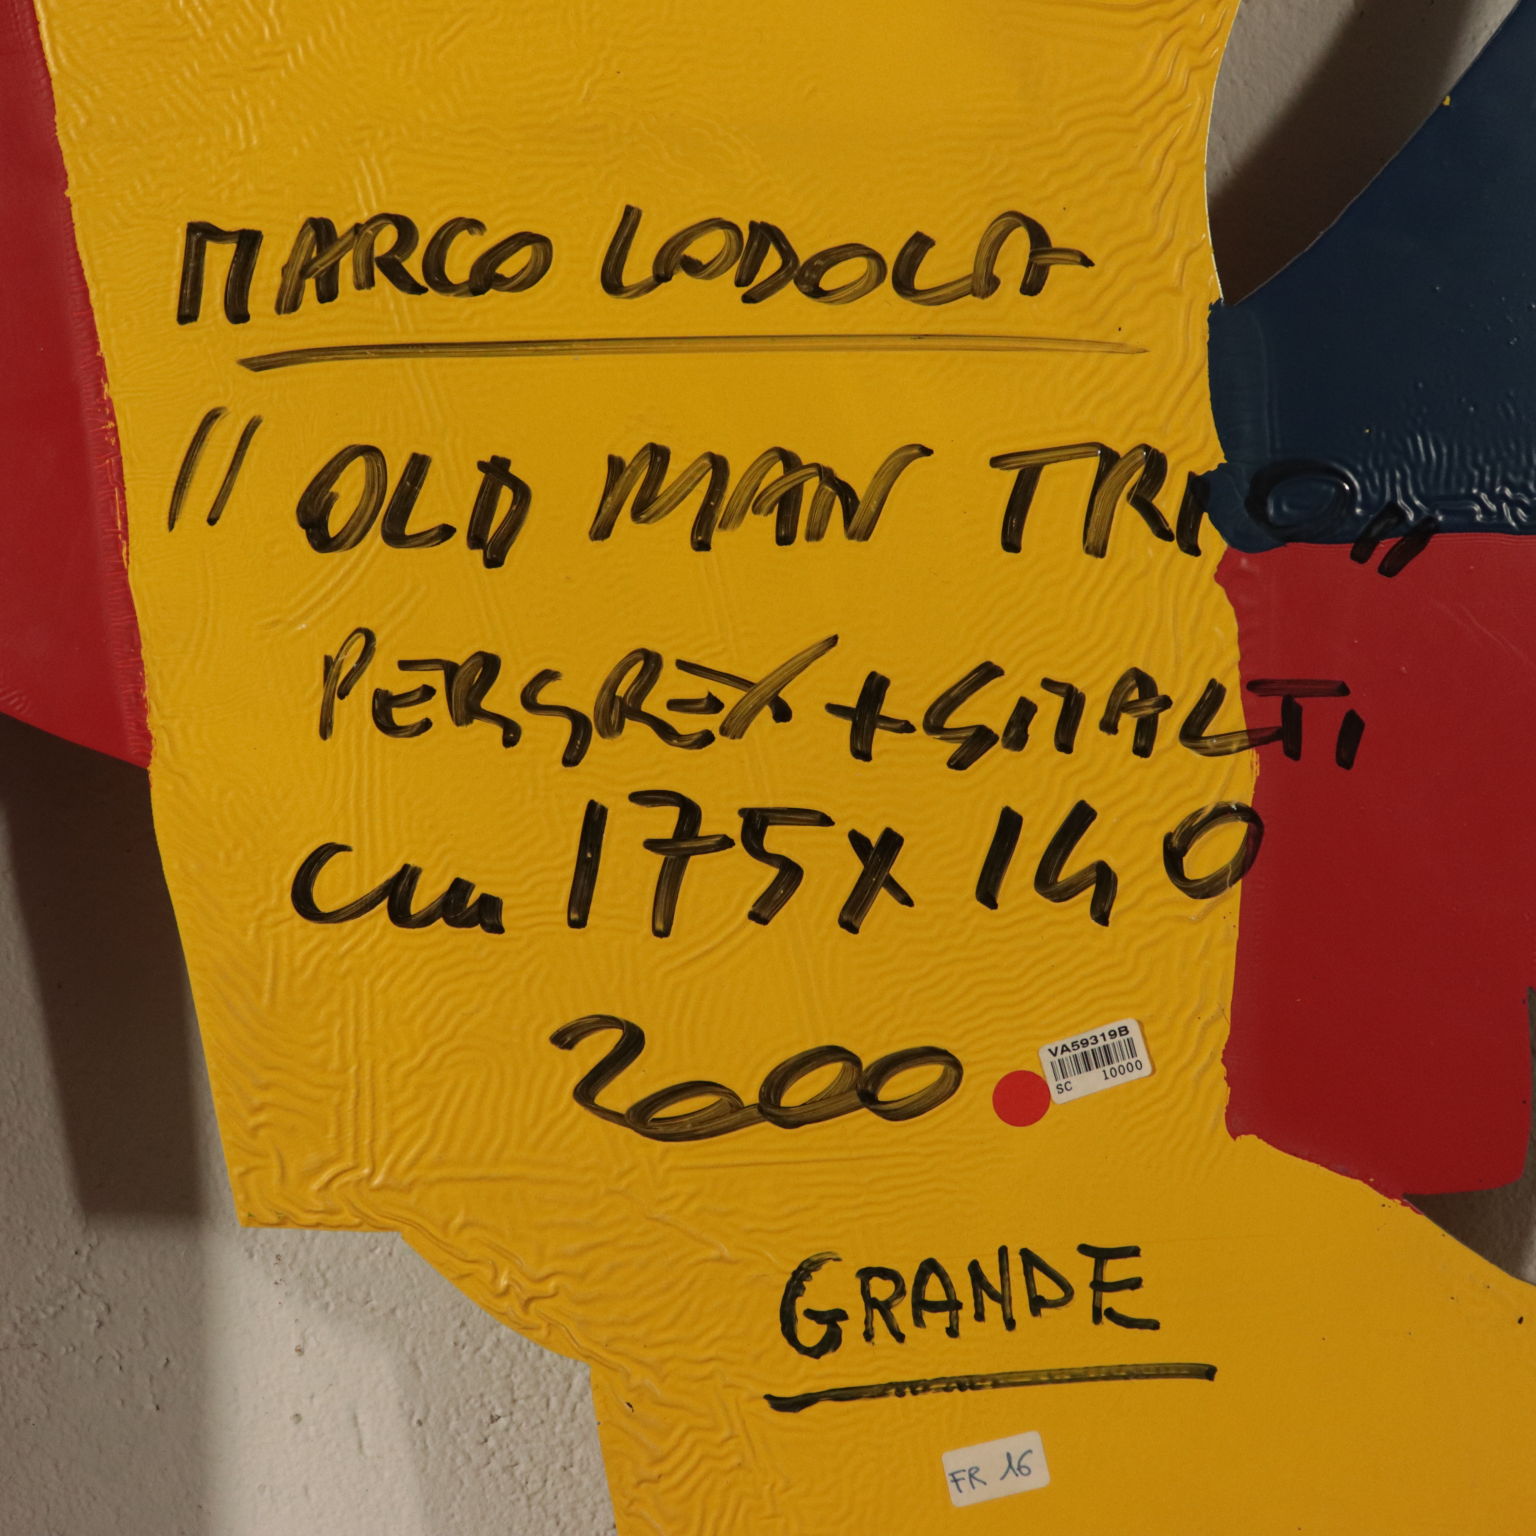 MARCO LODOLA
"OLD MAN TRIO"
PERSPEX + SMALTI
cm 175x140
2000
VA59319B
SC 10000
GRANDE
FR 16